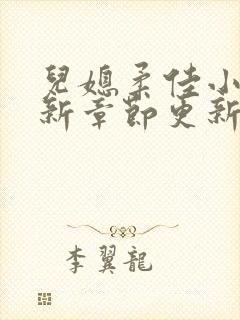 兒媳柔佳小
新章節更新
李翼龍